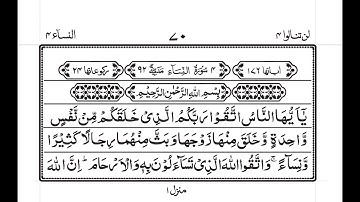 لن تنالوا ٤
٧٠
النسآء ٤
اٰیاتها ١٧٦
٤ سُوْرَةُ النِّسَآءِ مَدَنِیَّةٌ ٩٢
رکوعاتها ٢٤
بِسْمِ اللّٰهِ الرَّحْمٰنِ الرَّحِیْمِ
یٰۤاَیُّهَا النَّاسُ اتَّقُوْا رَبَّكُمُ الَّذِیْ خَلَقَكُمْ مِّنْ نَّفْسٍ
وَّاحِدَةٍ وَّخَلَقَ مِنْهَا زَوْجَهَا وَبَثَّ مِنْهُمَا رِجَالًا كَثِیْرًا
وَّنِسَآءً ۚ وَاتَّقُوا اللّٰهَ الَّذِیْ تَسَآءَلُوْنَ بِهٖ وَالْاَرْحَامَ ؕ اِنَّ اللّٰهَ
منزل ١